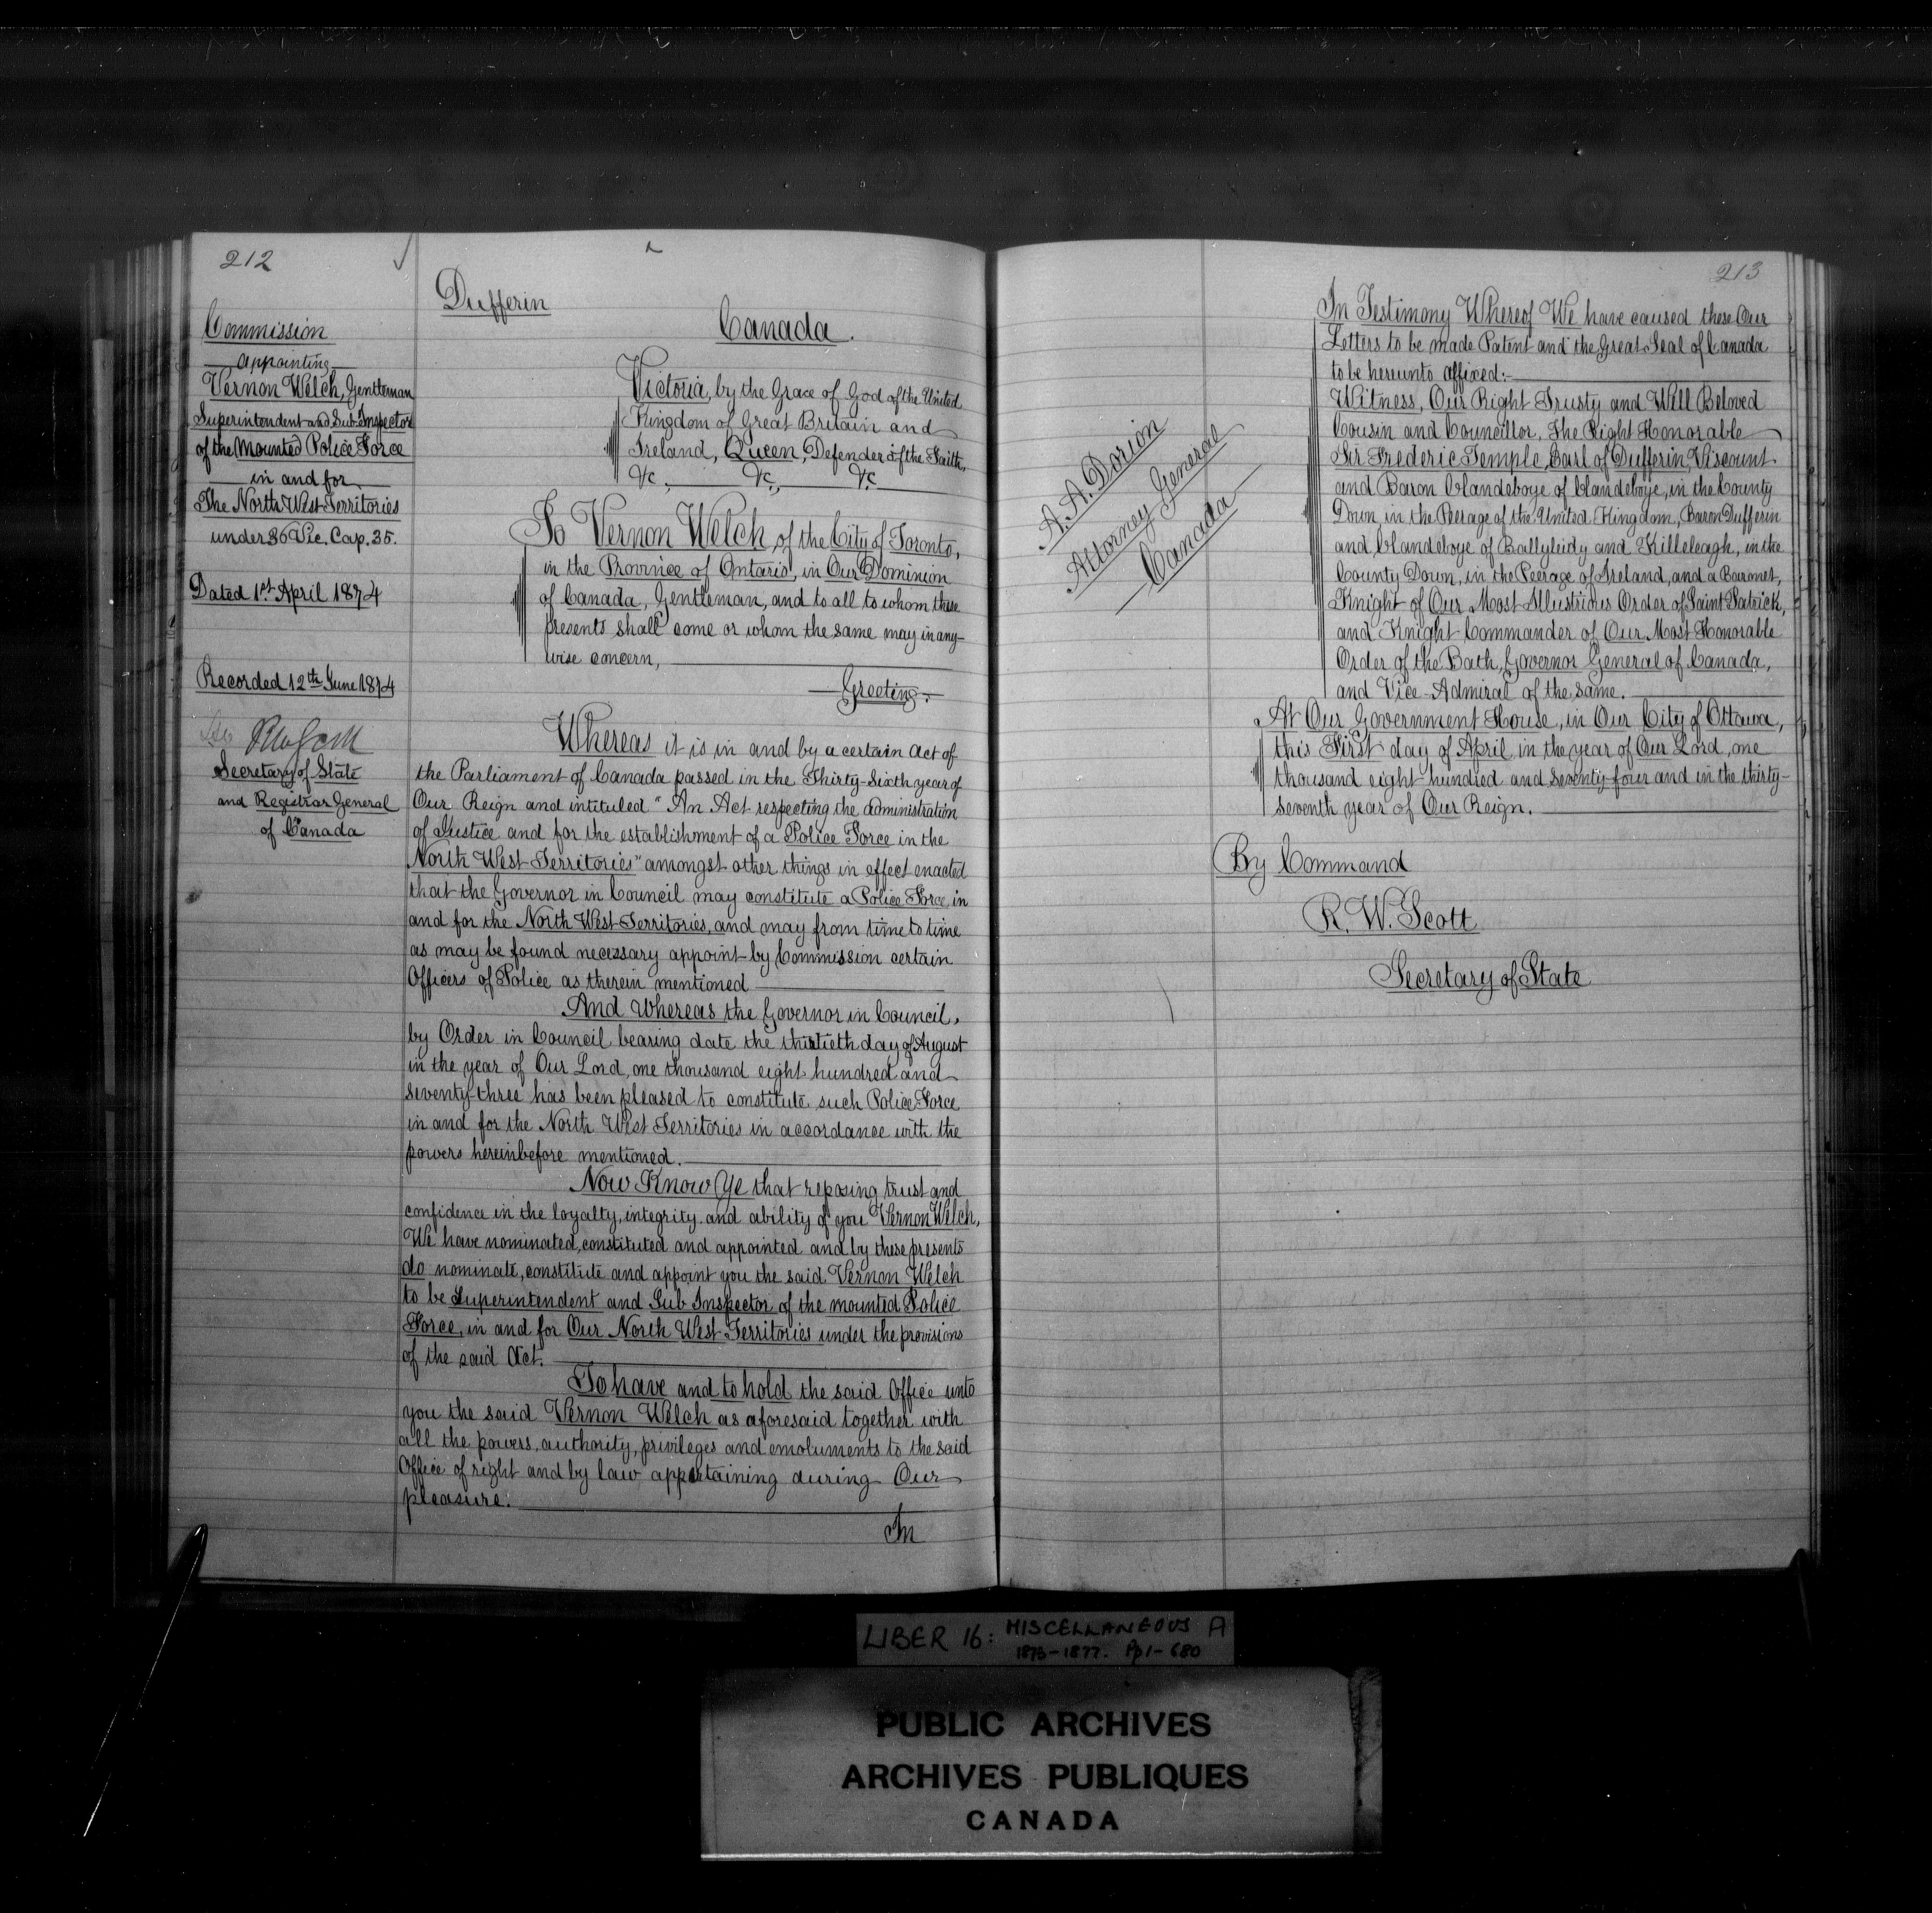 212
Commission
appointing
Vernon Welch, Gentleman
Superintendent and Sub Inspector
of the Mounted Police Force
in and for
The North West Territories
under 36 Vic. Cap. 35.
Dated 1st April 1874
Recorded 12th June 1874
Secretary of State
and Registrar General
of Canada
Dufferin
Canada.
Victoria, by the Grace of God of the United
Kingdom of Great Britain and
Ireland, Queen, Defender of the Faith,
&c, &c, &c
To Vernon Welch, of the City of Toronto,
in the Province of Ontario, in Our Dominion
of Canada, Gentleman, and to all to whom these
presents shall come or whom the same may in any-
wise concern,
Greeting:
Whereas it is in and by a certain Act of
the Parliament of Canada passed in the Thirty-Sixth year of
Our Reign and intituled "An Act respecting the administration
of Justice and for the establishment of a Police Force in the
North West Territories" amongst other things in effect enacted
that the Governor in Council may constitute a Police Force in
and for the North West Territories, and may from time to time
as may be found necessary appoint by Commission certain
Officers of Police as therein mentioned
And Whereas the Governor in Council,
by Order in Council bearing date the thirtieth day of August
in the year of Our Lord, one thousand eight hundred and
seventy-three has been pleased to constitute such Police Force
in and for the North West Territories in accordance with the
powers hereinbefore mentioned.
Now Know Ye that reposing trust and
confidence in the loyalty, integrity and ability of you Vernon Welch,
We have nominated, constituted and appointed and by these presents
do nominate, constitute and appoint you the said Vernon Welch
to be Superintendent and Sub Inspector of the mounted Police
Force, in and for Our North West Territories under the provisions
of the said Act.
To have and to hold the said Office unto
you the said Vernon Welch as aforesaid together with
all the powers, authority, privileges and emoluments to the said
Office of right and by law appertaining during Our
pleasure.
In
213
A. A. Dorion
Attorney General
Canada
In Testimony Whereof We have caused these Our
Letters to be made Patent and the Great Seal of Canada
to be hereunto affixed:-
Witness, Our Right Trusty and Well Beloved
Cousin and Councillor, The Right Honorable
Sir Frederic Temple, Earl of Dufferin, Viscount
and Baron Clandeboye of Clandeboye, in the County
Down, in the Peerage of the United Kingdom, Baron Dufferin
and Clandeboye of Ballyleidy and Killeleagh, in the
County Down, in the Peerage of Ireland, and a Baronet,
Knight of Our Most Illustrious Order of Saint Patrick,
and Knight Commander of Our Most Honorable
Order of the Bath, Governor General of Canada,
and Vice-Admiral of the same.
At Our Government House, in Our City of Ottawa,
this First day of April, in the year of Our Lord, one
thousand eight hundred and seventy-four and in the thirty-
seventh year of Our Reign.
By Command
R. W. Scott
Secretary of State
LIBER 16: MISCELLANEOUS A
1873-1877. Pp 1-680
PUBLIC ARCHIVES
ARCHIVES PUBLIQUES
CANADA